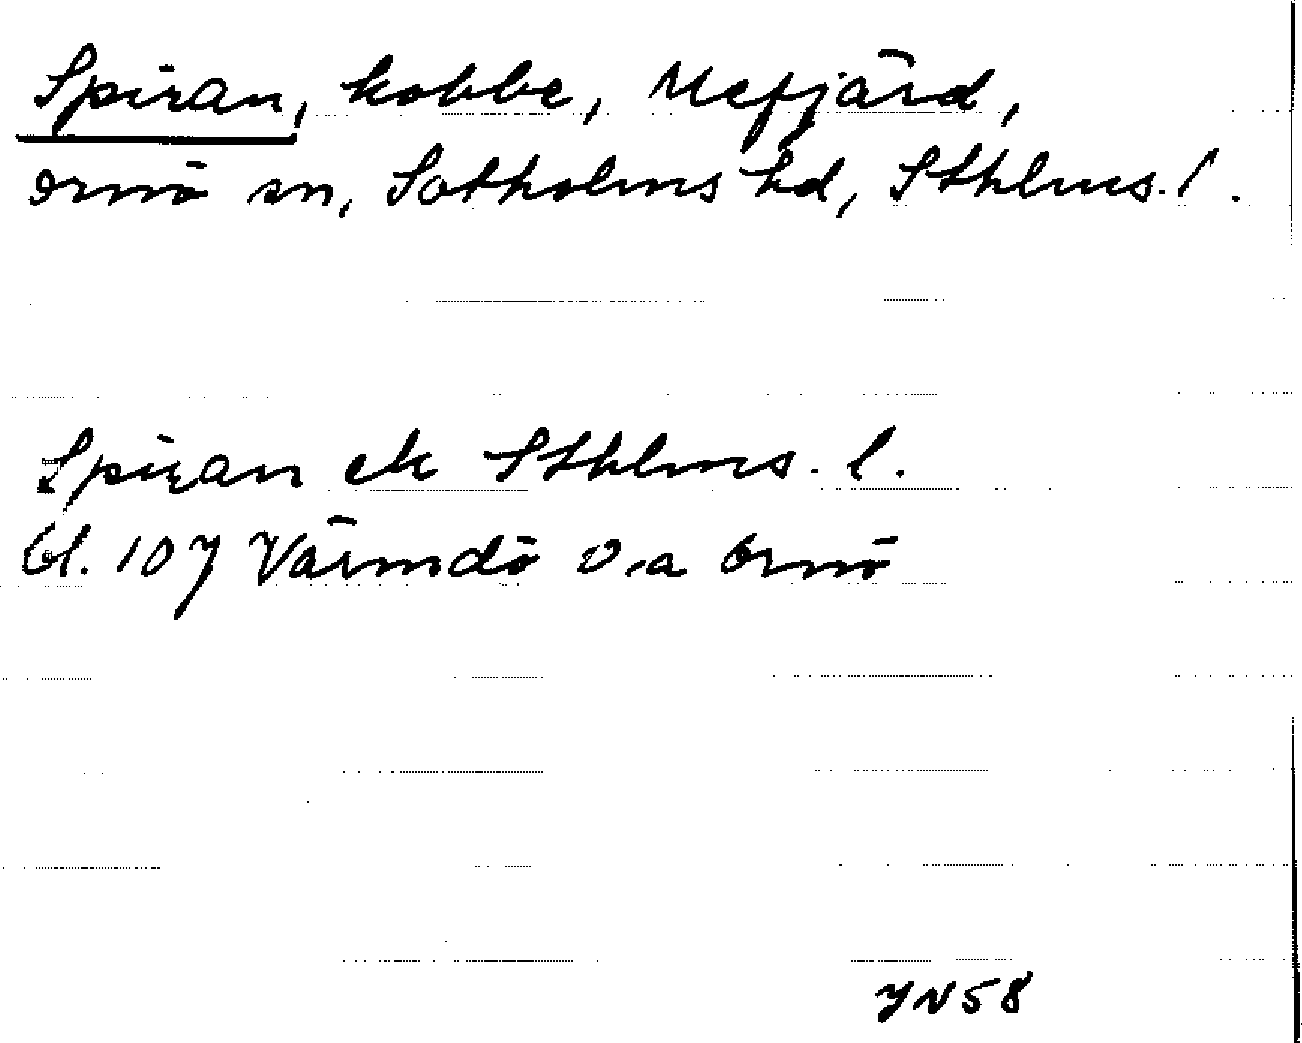 Spiran, kobbe, Mefjärd,
Ornö sn, Sotholms hd, Sthlms. l.
Spiran ek Sthlms. l.
bl. 107 Värmdö v.a Ornö
YN58